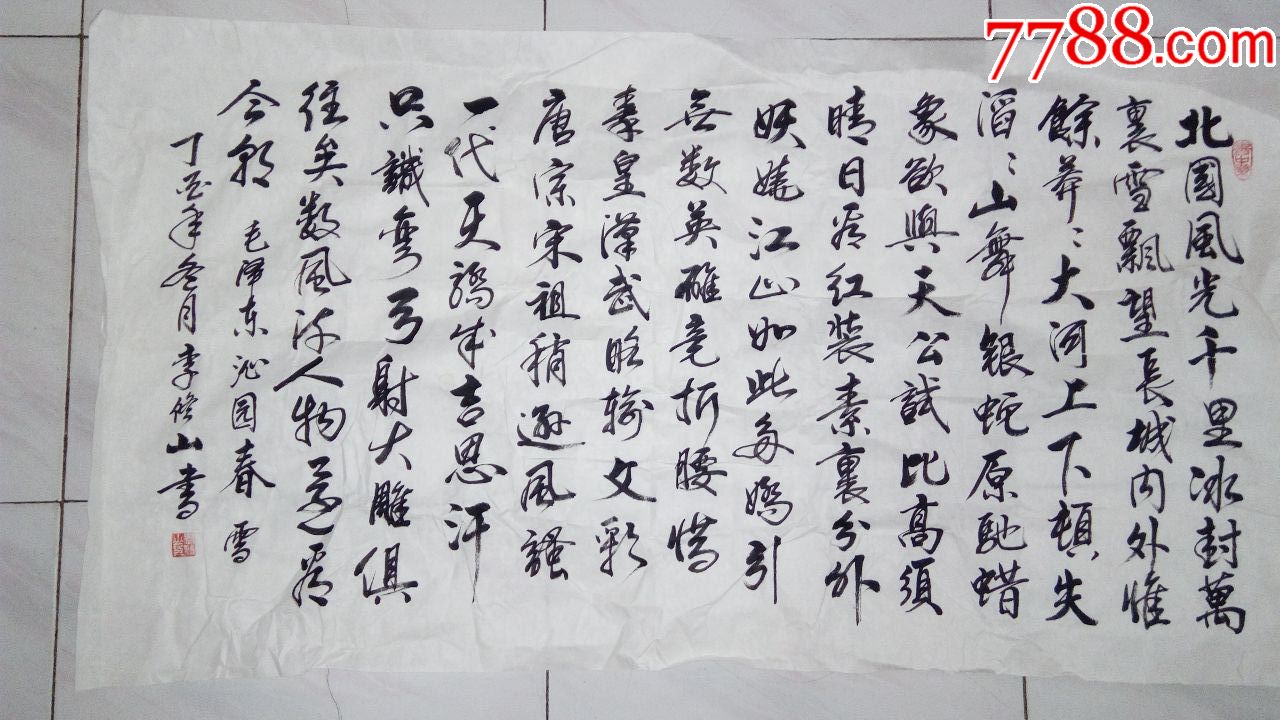 7788.com
北國風光千里冰封萬
裏雪飄望長城内外惟
餘莽〻大河上下頓失
滔〻山舞銀蛇原馳蜡
象欲與天公試比高須
晴日看红裝素裏分外
妖娆江山如此多嬌引
无数英雄竞折腰惜
秦皇漢武略输文彩
唐宗宋祖稍遜風騷
一代天骄成吉思汗
只識彎弓射大雕俱
往矣数風流人物还看
今朝 毛泽东沁园春 雪
丁酉年冬月李修山書